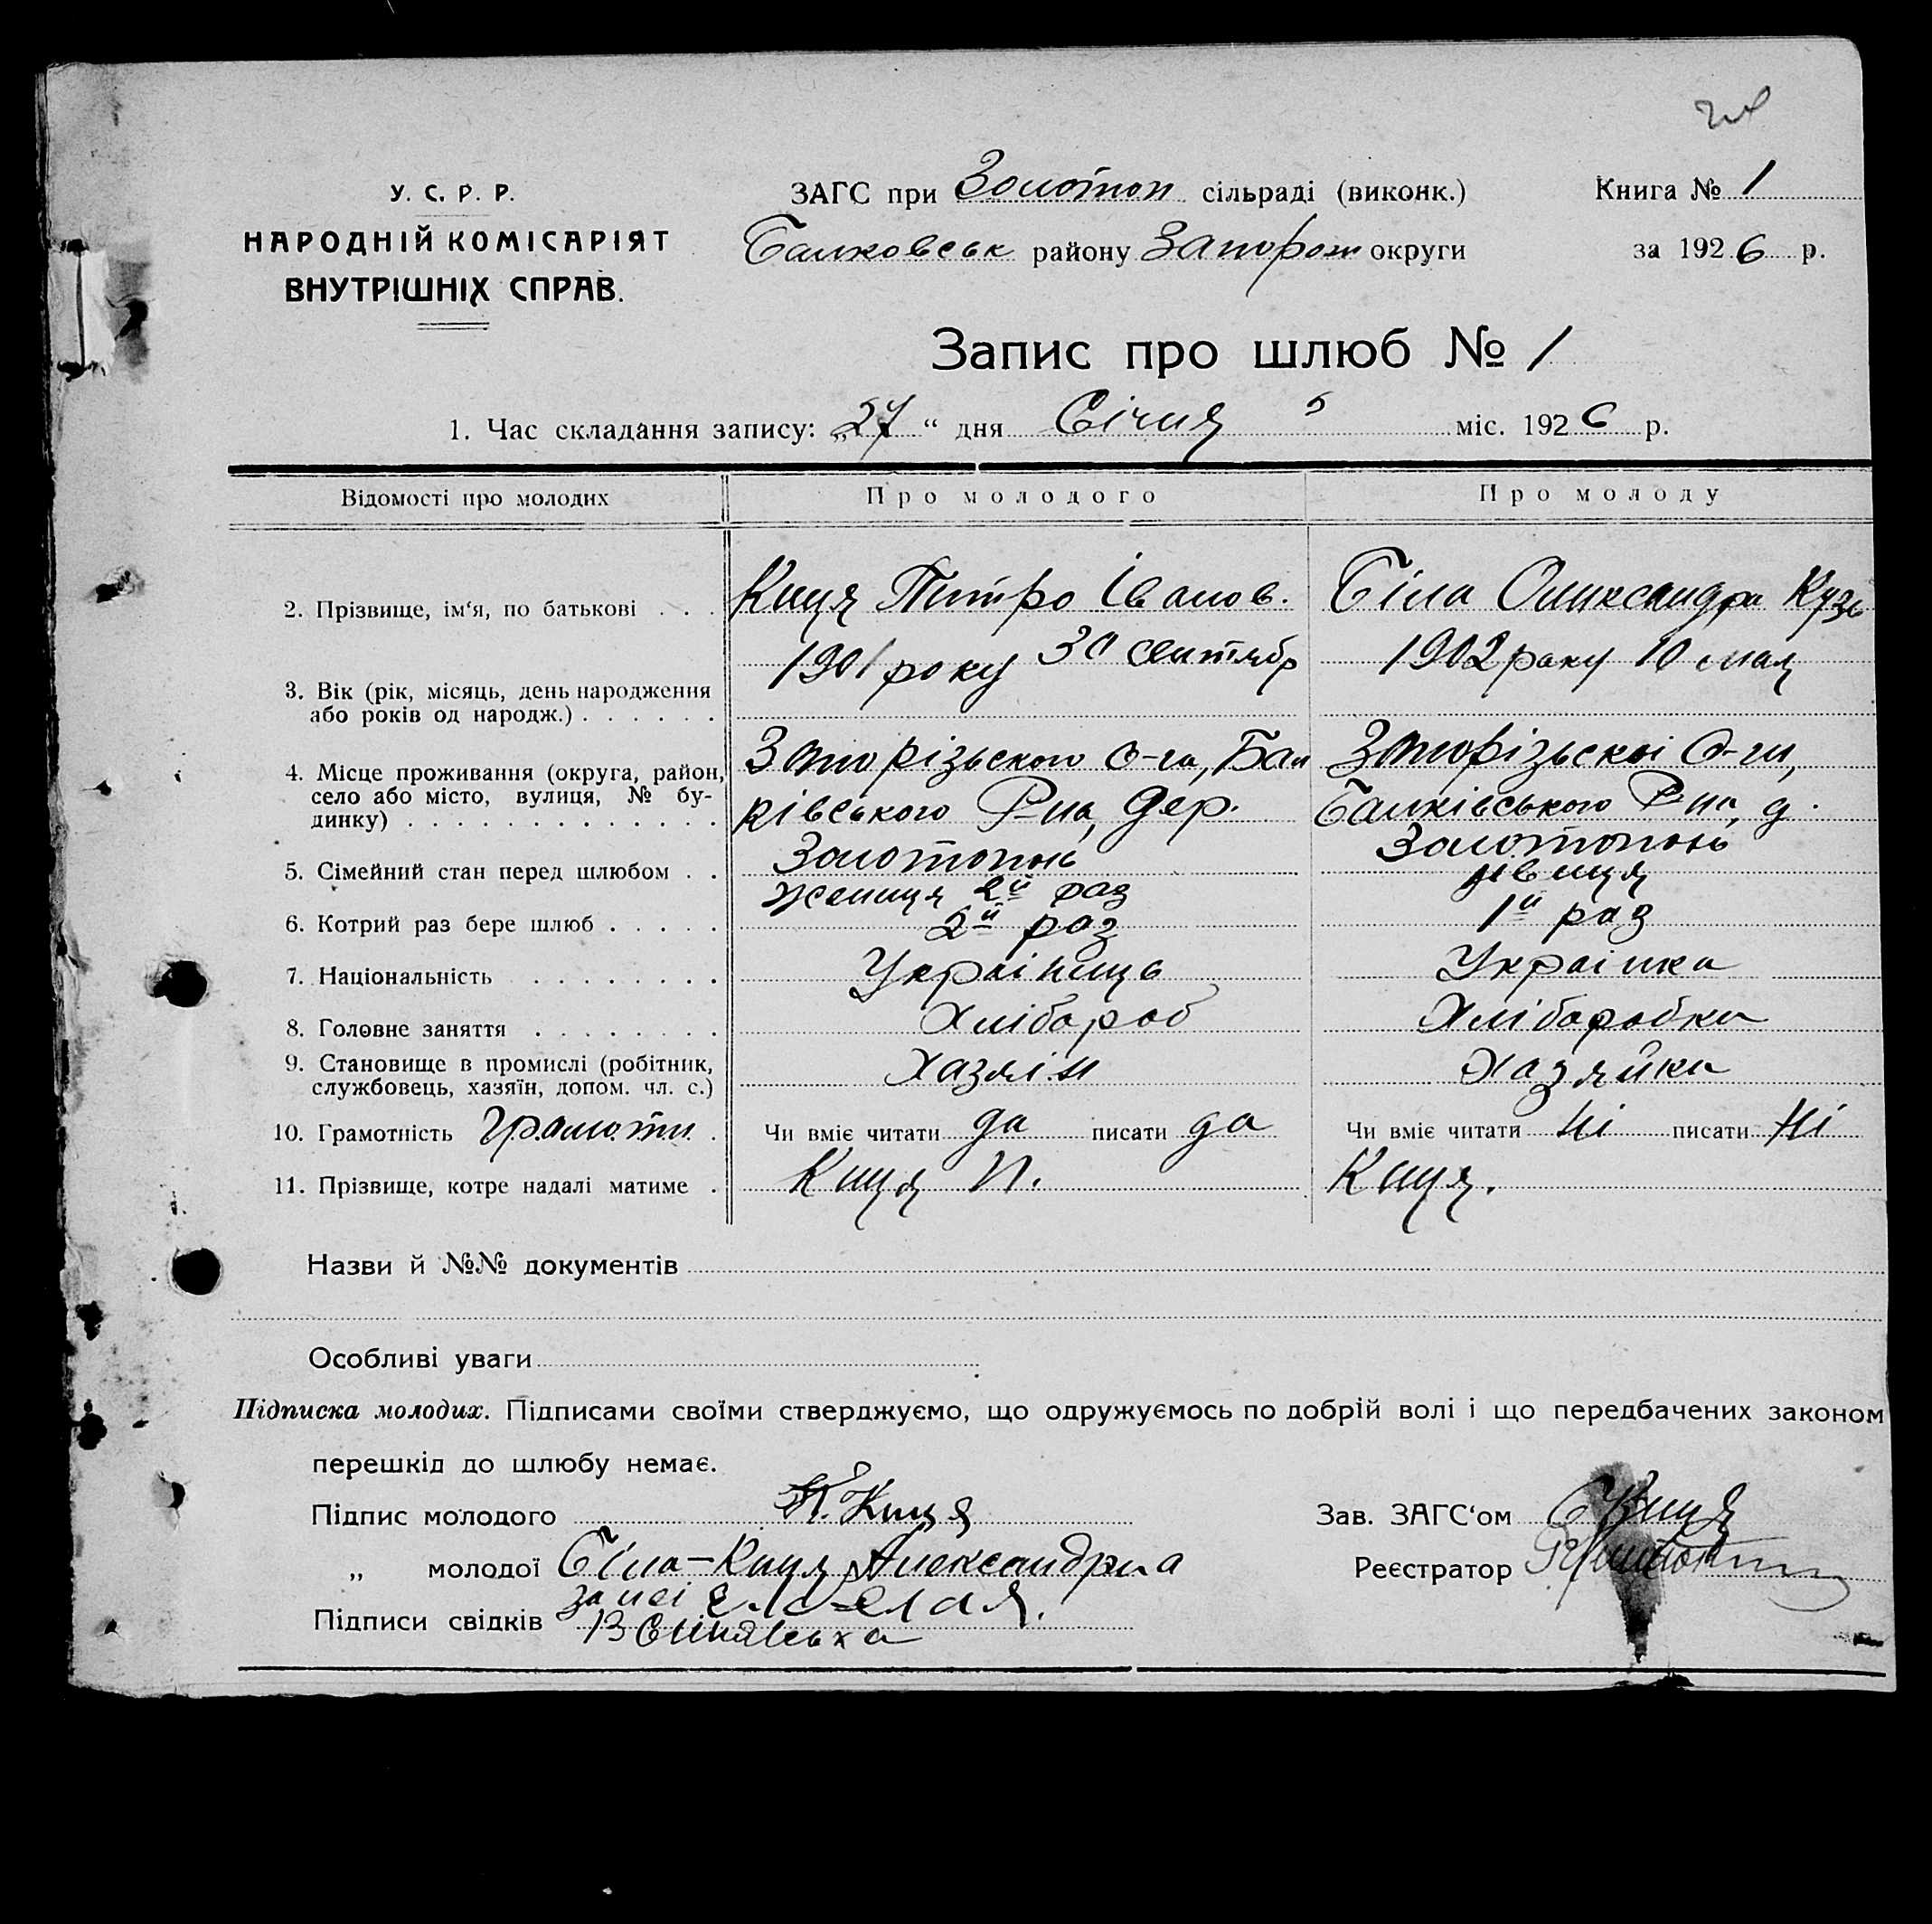 У. С. Р. Р.
НАРОДНІЙ КОМІСАРІЯТ
ВНУТРІШНІХ СПРАВ.
ЗАГС при Золотоп сільраді (виконк.)
Балковськ району Запорож округи
Книга № 1
за 1926 р.
Запис про шлюб № 1
1. Час складання запису: „27“ дня Січня міс. 1926 р.
Відомості про молодих Про молодого Про молоду
2. Прізвище, ім‘я, по батькові . . . Киця Питро Іванов. Біла Оликсандра Кузь
3. Вік (рік, місяць, день народження
або років од народж.) . . . . . . 1901 року 30 сентябр 1902 року 10 мая
4. Місце проживання (округа, район,
село або місто, вулиця, № бу-
динку) . . . . . . . . . . . . .
Запорізьского О-га, Бал
ківського Р-на, дер.
Золотопонь
Запорізьскоі О-ги,
Балківського Р-на, д.
Золотопонь
5. Сімейний стан перед шлюбом . . жениця 2й раз дівиця
6. Котрий раз бере шлюб . . . . . 2й раз 1й раз
7. Національність . . . . . . . . Украіниць Украінка
8. Головне заняття . . . . . . . Хлібороб Хліборобка
9. Становище в промислі (робітник,
службовець, хазяїн, допом. чл. с.) Хазяін Хазяйка
10. Грамотність Грамотн. Чи вміє читати да писати да Чи вміє читати Ні писати Ні
11. Прізвище, котре надалі матиме . Киця П. Киця.
Назви й №№ документів
Особливі уваги
Підписка молодих. Підписами своїми стверджуємо, що одружуємось по добрій волі і що передбачених законом
перешкід до шлюбу немає.
Підпис молодого П. Киця
„ молодої Біла-Киця Александриа
за неі
Підписи свідків
Зав. ЗАГС‘ом Киця
Реєстратор